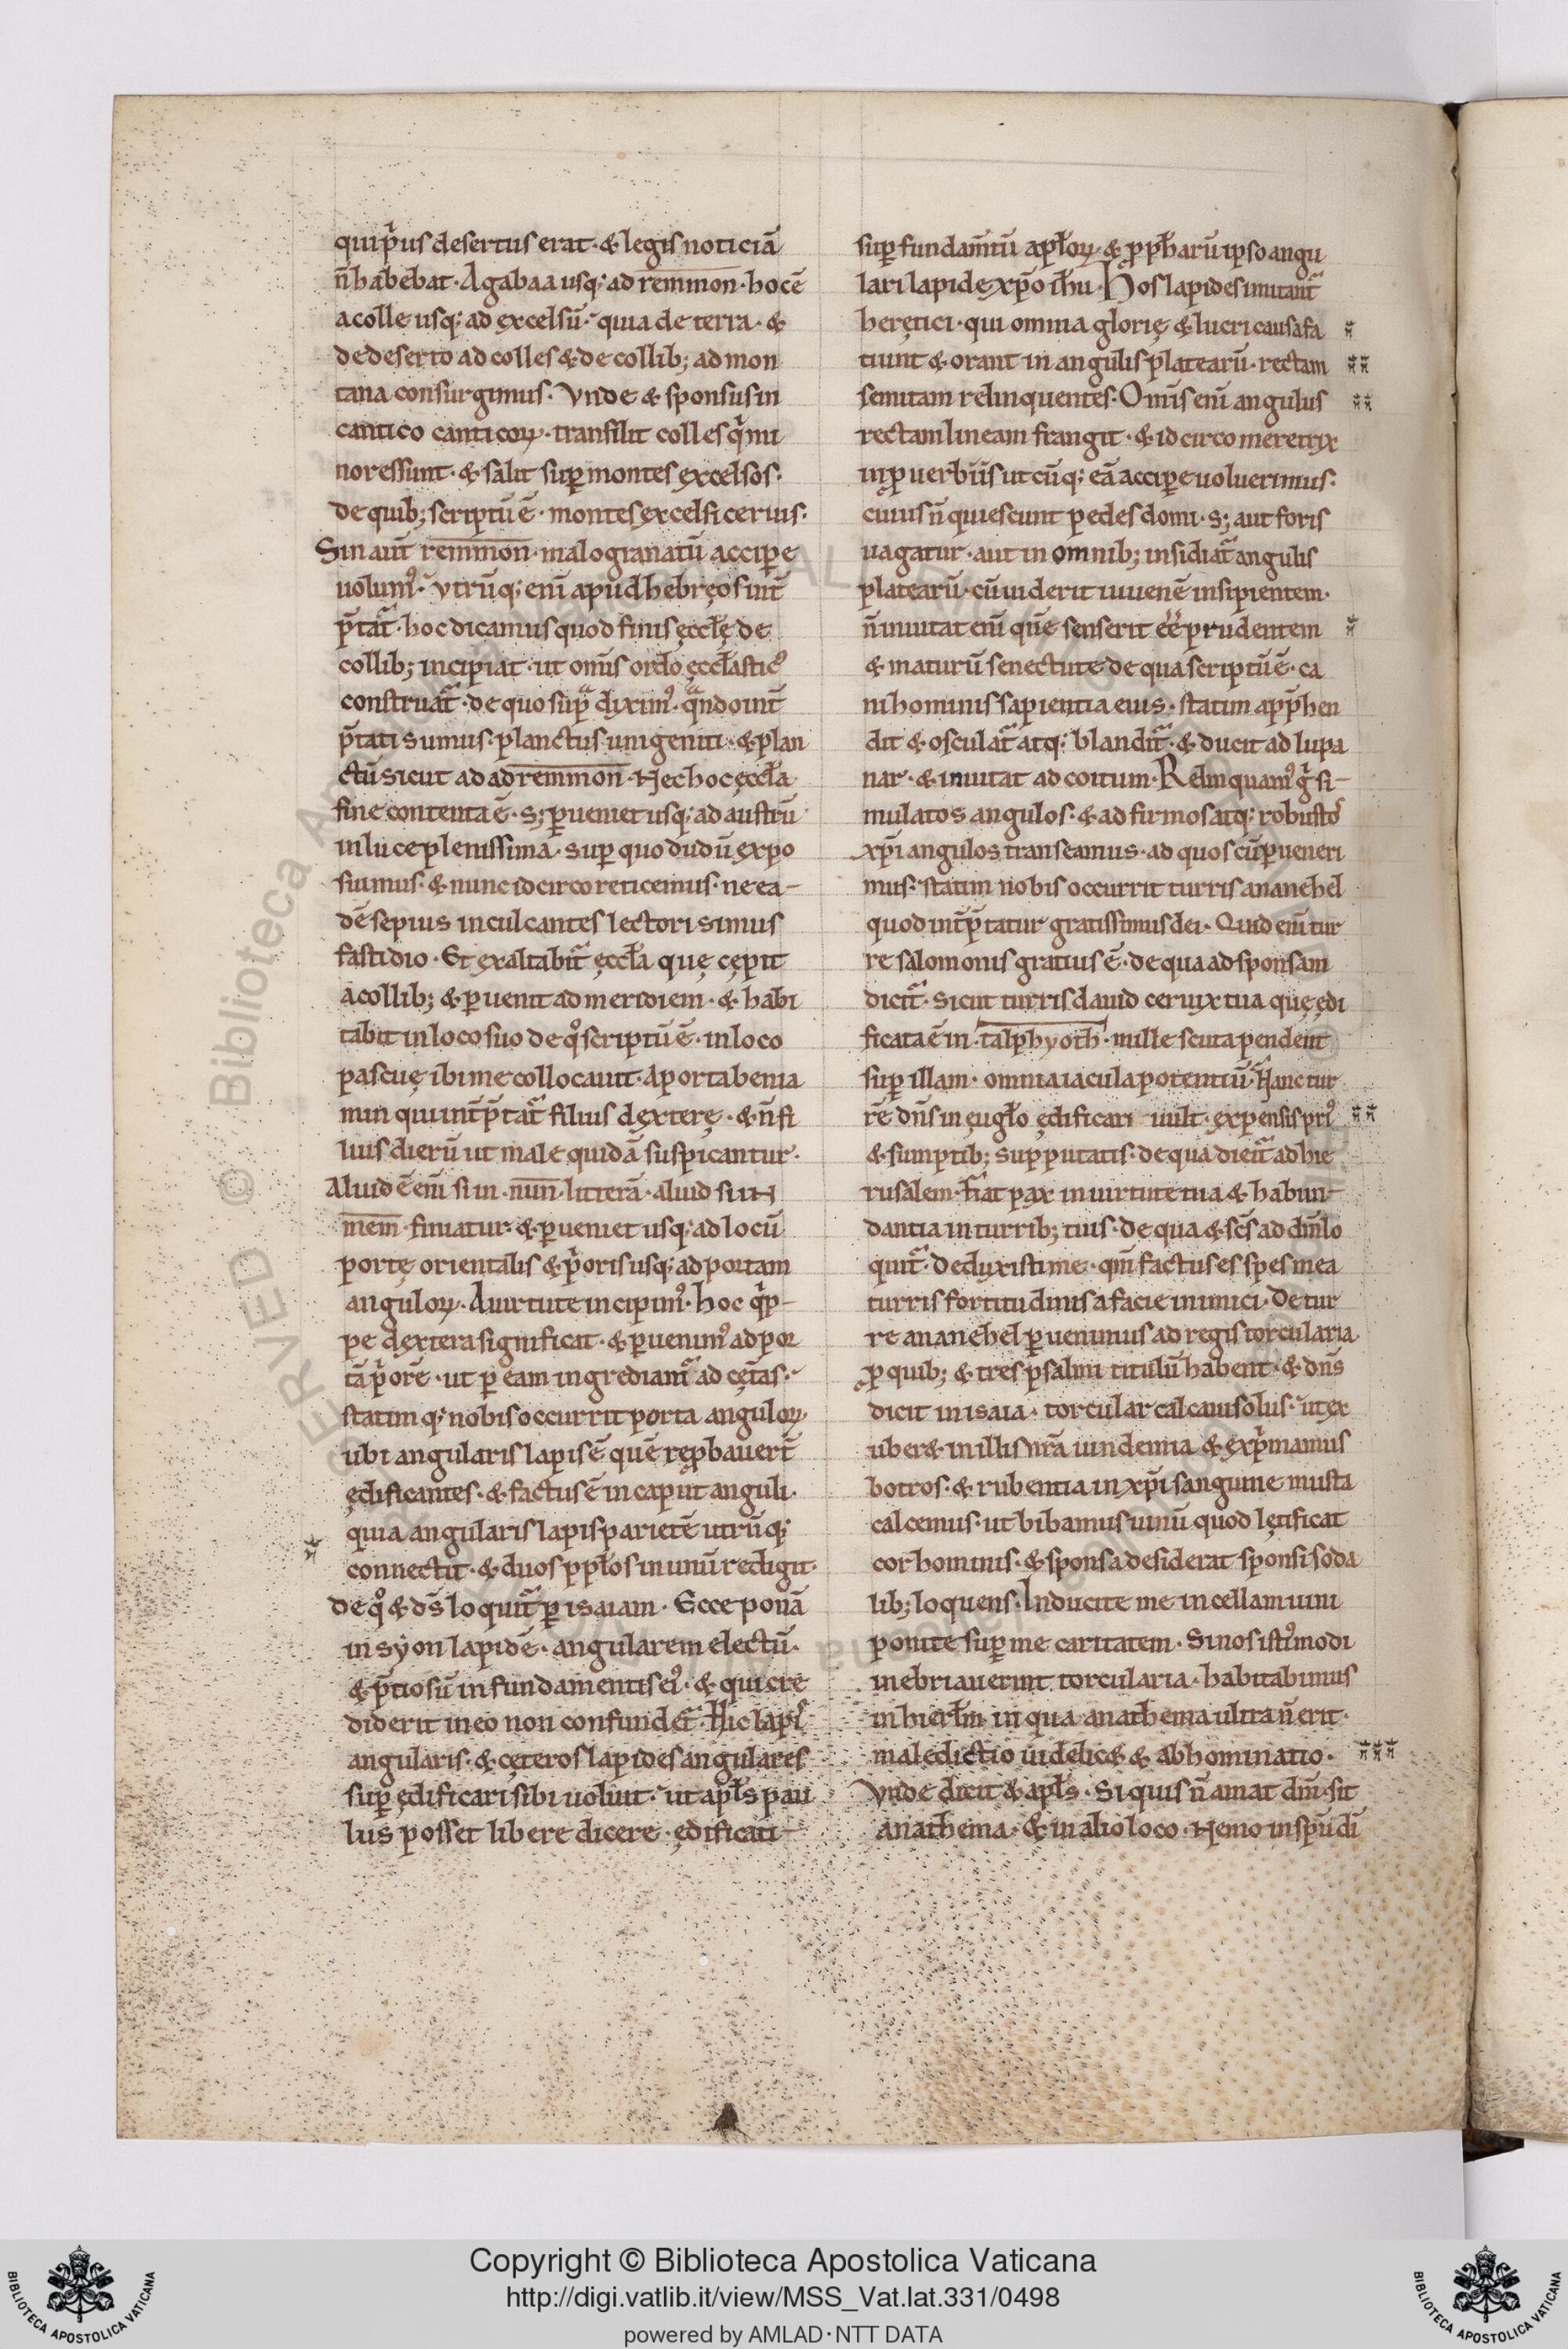 qui p̄us desertus erat· & legis noticiā
n̄ habebat· A gabaa usq; ad remmon· hoc ē
a colle usq; ad excelsū· quia de terra· &
de deserto ad colles & de collib; ad mon
tana consurgimus· Vnde & sponsus in
cantico canticoꝝ· transilit colles q̄ mi
nores sunt· & salit sup̱ montes excelsos·
de quib; scriptū ē· montes excelsi ceruis·
Sin aut̄ remmon· malogranatū accip̱e
uolumꝰ· utrūq; eni apud hebręos int̄
p̄tat̄· hoc dicamus quod finis ęcclę de
collib; incipiat· ut omīs ordo ęcclasticꝰ
construat̄· de quo sup̄ diximꝰ· q̄ndo int̄
p̄tati sumus· planctus unigeniti· & plan
ctū sicut ad adremmon· Nec hoc ęccła
fine contenta ē· s; p̱ueniet usq; ad austrū
in luce plenissima· sup̱ quo dudū expo
suimus· & nunc idcirco reticemus· ne ea-
dē sepius inculcantes lectori simus
fastidio· Et exaltabit̄ ęccła quę cępit
a collib; & p̱uenit ad meridiem· & habi
tabit in loco suo de q̊ scriptū ē· in loco
pascuę ibi me collocauit· A porta benia
min qui int̄p̄tat̄ filius dexterę· & n̄ fi
lius dierū ut male quidā suspicantur·
Aliud ē eni si in ·nun· litterā· aliud si in
mem finiatur· & p̱ueniet usq; ad locū
portę orientalis & p̄oris usq; ad portam
anguloꝝ· A uirtute incipimꝰ· hoc q̄p-
pe dextera significat· & p̱uenimꝰ ad por
tā p̄orē· ut p̱ eam ingrediam̄ ad cętas·
statimq; nobis occurrit porta anguloꝝ·
ubi angularis lapis ē quē rep̱bauert̄
ędificantes· & factus ē in caput anguli·
quia angularis lapis parietē utrūq;
connectit· & duos pp̱łos in unū redigit·
de q̊ & d̄s loquit̄ p̱ isaiam· Ecce ponā
in syon lapidē· angularem electū·
& p̄tiosū in fundamentis eiꝰ· & qui cre
diderit in eo non confundet̄· Hic lapis
angularis· & cęteros lapides angulares
sup̱ędificari sibi uoluit· ut apł̄s pau
lus posset libere dicere· ędificati-
sup̱ fundam̄tū apł̄oꝝ· & pp̱harū ipso angu
lari lapide xp̄o ih̄u· Hos lapides imitant̄
heretici· qui omnia glorię & lucri causa fa
ciunt & orant in angulis platearū· rectam
semitam relinquentes· Omīs eni angulus
rectam lineam frangit· & idcirco meretrix
in p̱uerbiis utcūq; eā accip̱e uoluerimus·
cuius n̄ quiescunt pedes domi· s; aut foris
uagatur· aut in omnib; insidiat̄ angulis
platearū· cū uiderit iuuenē insipientem·
n̄ inuitat eni quē senserit eē prudentem
& maturū senectute de qua scriptū ē· ca
ni hominis sapientia eius· statim app̄hen
dit & osculat̄ atq; blandit̄· & ducit ad lupa
nar· & inuitat ad coitum· Relinquamꝰ g̊ si-
mulatos angulos· & ad firmos atq; robustos
xp̄i angulos transeamus· ad quos cū p̱ueneri
mus· statim nobis occurrit turris ananehel
quod int̄p̄tatur gratissimus dei· Quid eni tur
re salomonis gratius ē· de qua ad sponsam
dicit̄· Sicut turris dauid ceruix tua quę ędi
ficata ē in ·talphyoth· mille scuta pendent
sup̱ illam· omnia iacula potentiū· Hanc tur
rē dn̄s in eugł̄o ędificari uult· expensis priꝰ
& sumptib; supputatis· de qua dicit̄ ad hie
rusalem· Fiat pax in uirtute tua & habun-
dantia in turrib; tuis· de qua & sc̄s ad dn̄m lo
quit̄· deduxisti me· qm̄ factus es spes mea
turris fortitudinis a facie inimici· De tur
re ananehel p̱uenimus ad regis torcularia·
p̱ quib; & tres psalmi titulū habent· & dn̄s
dicit in isaia· torcular calcaui solus· ut ex
uber& in illis nr̄a uindemia & exp̄mamus
botros· & rubentia in xp̄i sanguine musta
calcemus· ut bibamus uinū quod lętificat
cor hominis· & sponsa desiderat sponsi soda
lib; loquens· Inducite me in cellam uini
ponite sup̱ me caritatem· Si nos istiꝰmodi
inebriauerint torcularia· habitabimus
in hierł̄m in qua anathema ultra n̄ erit·
maledictio uidelic& & abhominatio·
Vnde dicit & apł̄s· Si quis n̄ amat dn̄m· sit
anathema· & in alio loco· Nemo in sp̄u di
Copyright © Biblioteca Apostolica Vaticana
http://digi.vatlib.it/view/MSS_Vat.lat.331/0498
powered by AMLAD·NTT DATA